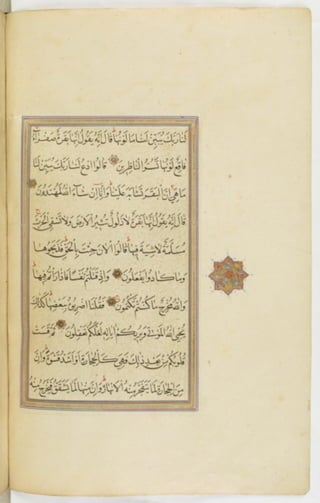 لَنَا رَبَّكَ يُبَيِّنْ لَنَا مَا لَوْنُهَا قَالَ إِنَّهُ يَقُولُ إِنَّهَا بَقَرَةٌ صَفْرَاءُ
فَاقِعٌ لَوْنُهَا تَسُرُّ النَّاظِرِينَ قَالُوا ادْعُ لَنَا رَبَّكَ يُبَيِّنْ لَنَا
مَا هِيَ إِنَّ الْبَقَرَ تَشَابَهَ عَلَيْنَا وَإِنَّا إِنْ شَاءَ اللَّهُ لَمُهْتَدُونَ
قَالَ إِنَّهُ يَقُولُ إِنَّهَا بَقَرَةٌ لَا ذَلُولٌ تُثِيرُ الْأَرْضَ وَلَا تَسْقِي الْحَرْثَ
مُسَلَّمَةٌ لَا شِيَةَ فِيهَا قَالُوا الْآنَ جِئْتَ بِالْحَقِّ فَذَبَحُوهَا
وَمَا كَادُوا يَفْعَلُونَ وَإِذْ قَتَلْتُمْ نَفْسًا فَادَّارَأْتُمْ فِيهَا
وَاللَّهُ مُخْرِجٌ مَا كُنْتُمْ تَكْتُمُونَ فَقُلْنَا اضْرِبُوهُ بِبَعْضِهَا كَذَلِكَ
يُحْيِي اللَّهُ الْمَوْتَى وَيُرِيكُمْ آيَاتِهِ لَعَلَّكُمْ تَعْقِلُونَ ثُمَّ قَسَتْ
قُلُوبُكُمْ مِنْ بَعْدِ ذَلِكَ فَهِيَ كَالْحِجَارَةِ أَوْ أَشَدُّ قَسْوَةً وَإِنَّ
مِنَ الْحِجَارَةِ لَمَا يَتَفَجَّرُ مِنْهُ الْأَنْهَارُ وَإِنَّ مِنْهَا لَمَا يَشَّقَّقُ فَيَخْرُجُ مِنْهُ